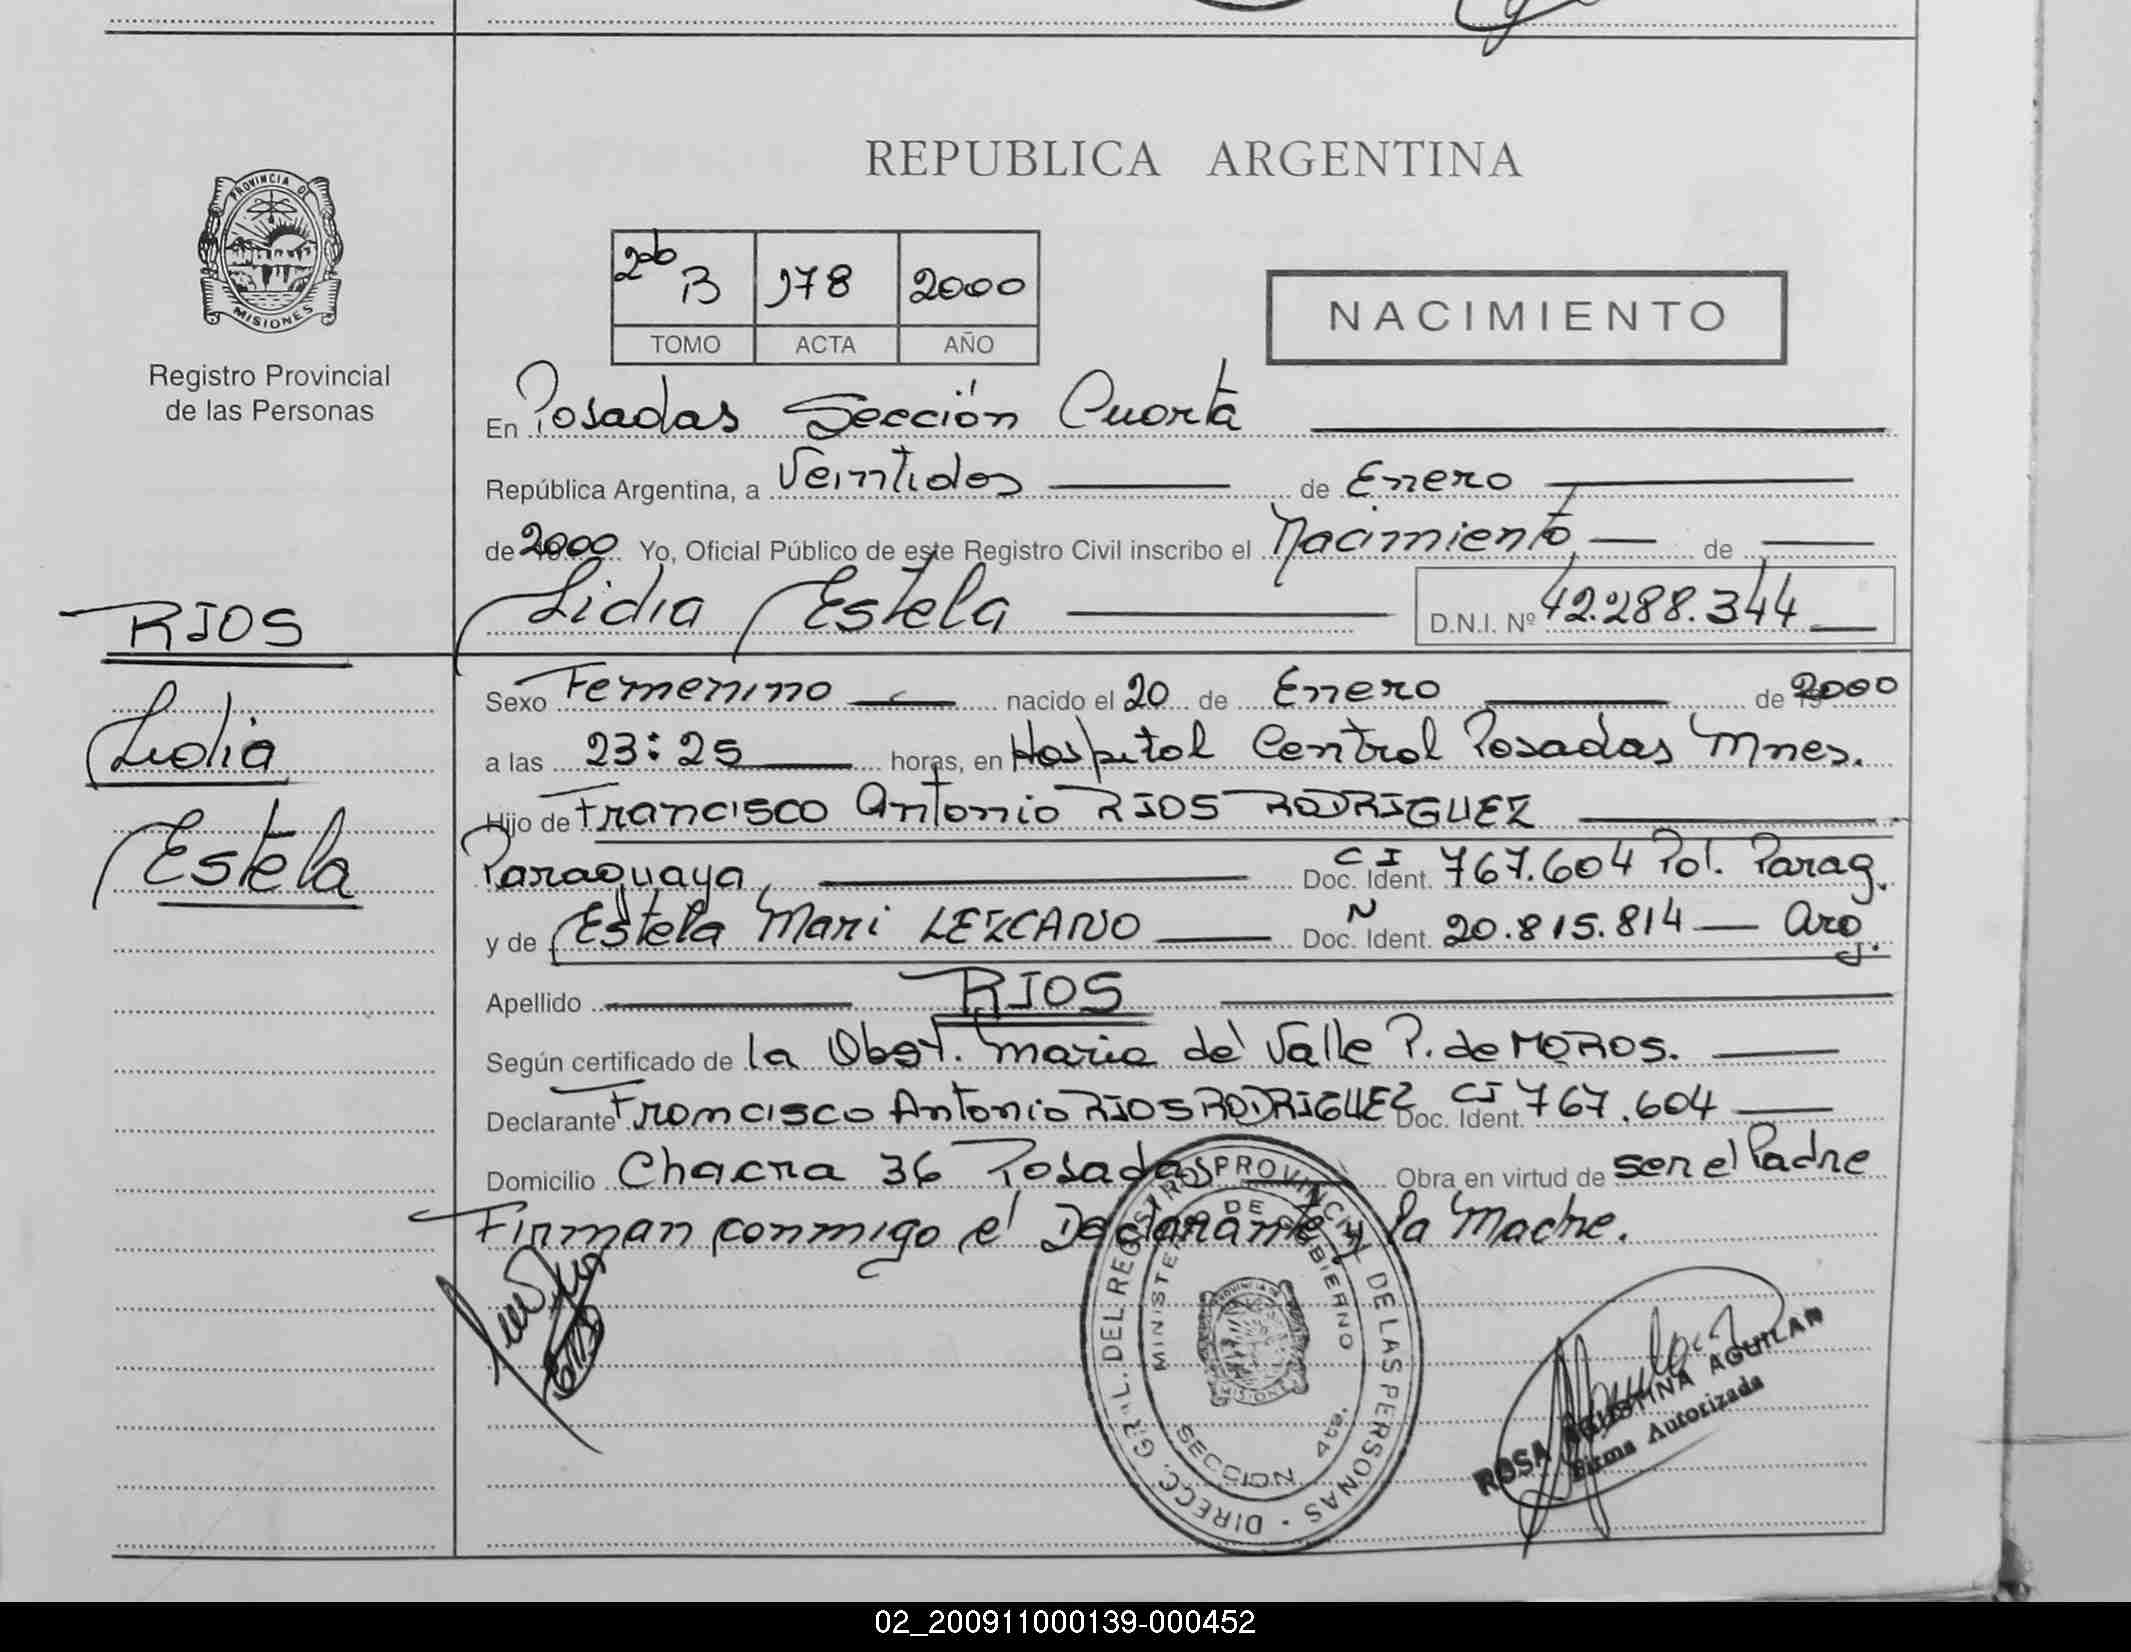 REPUBLICA ARGENTINA
PROVINCIA DE
MISIONES
Registro Provincial
de las Personas
2do B 178 2000
TOMO ACTA AÑO
NACIMIENTO
En Posadas Sección Cuarta
República Argentina, a Veintidos de Enero
de 2000 Yo, Oficial Público de este Registro Civil inscribo el Nacimiento de
Lidia Estela D.N.I. Nº 42.288.344
RIOS
Lidia
Estela
Sexo Femenino nacido el 20 de Enero de 2000
a las 23:25 horas, en Hospital Central Posadas Mnes.
Hijo de Francisco Antonio RIOS RODRIGUEZ
Paraguaya, Doc. Ident. CI 767.604 Pol. Parag.
y de Estela Mari LEZCANO Doc. Ident. N 20.815.814 Arg.
Apellido RIOS
Según certificado de la Obst. Maria del Valle P. de MOROS.
Declarante Francisco Antonio RIOS RODRIGUEZ Doc. Ident. CI 767.604
Domicilio Chacra 36 Posadas Obra en virtud de ser el Padre
Firman conmigo el Declarante y la Madre.
DIRECC. GRAL. DEL REGISTRO PROVINCIAL DE LAS PERSONAS
MINISTERIO DE GOBIERNO
SECCION 4ta.
ROSA AGUSTINA AGUILAR
Firma Autorizada
02_200911000139-000452